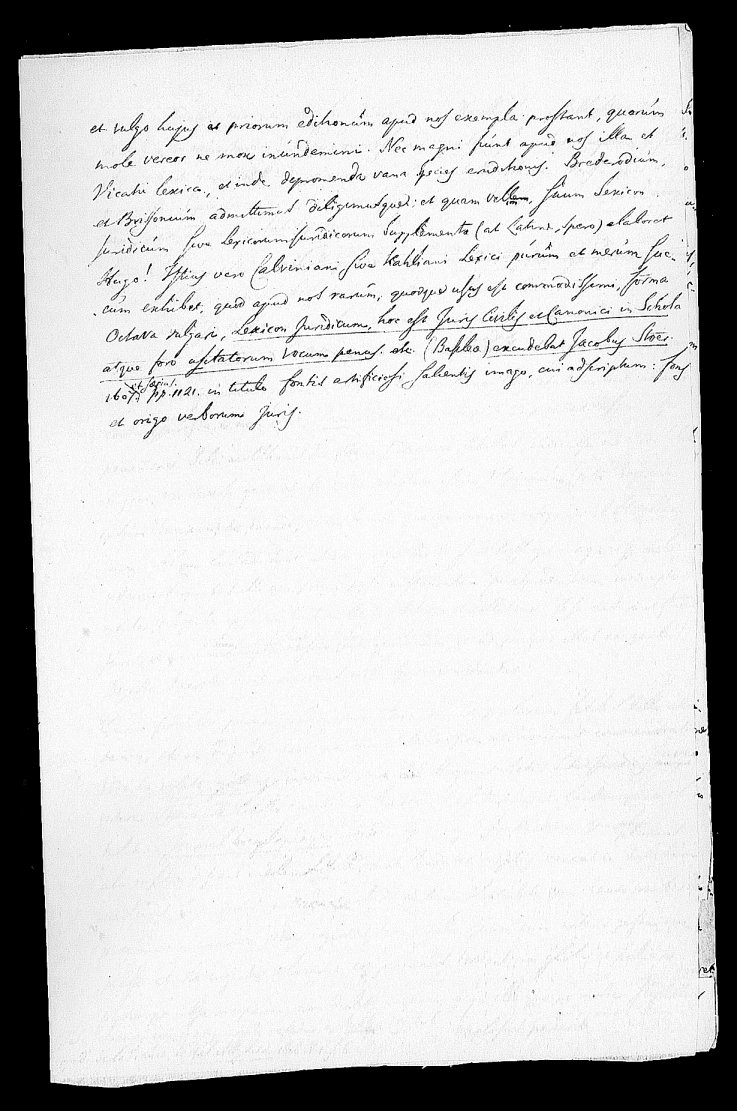 et vulgo hujus ac priorum editionum apud nos exempla prostant, quorum
mole vereor ne mox inundemini. Nec magni sunt apud nos illa et
Vicatii lexica, et inde depromenda vana species eruditionis. Brederodium,
et Brissonium admittimus diligimusque: et quam vellem, suum Lexicon
juridicum sive Lexicorum Juridicorum Supplementa (at Latine, spero) elaboret
Hugo! Istius vero Calviniani sive Kahliani Lexici purum et merum suc-
cum exhibet, quod apud nos rarum, quodque usus est commodissimi, forma
Octava vulgari, Lexicon Juridicum, hoc est Juris Civilis et Canonici in Schola
atque foro usitatorum vocum penus. etc. (Basilea) excudebat Jacobus Stoer.
1607. pp. 1121. in titulo fontis artificiosi salientis imago, cui adscriptum: fons
et origo verborum Juris.